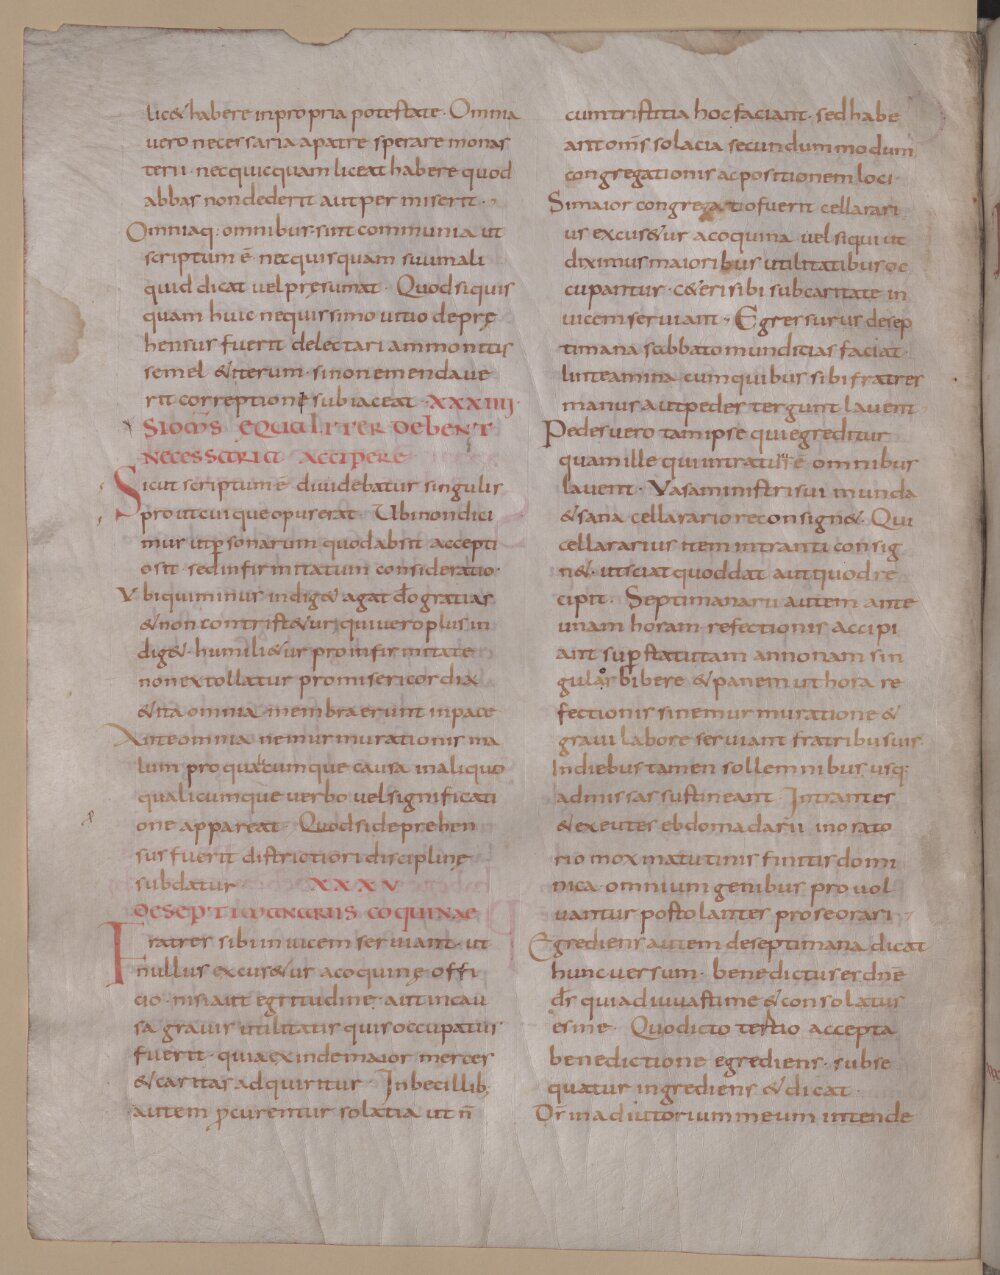 lic& habere inpropria potestate · Omnia
vero necessaria apatre sperare monas
terii · necquicquam liceat habere quod
abbas nondederit aut per miserit ·
Omniaq: omnibus sint communia ut
scriptum ē · necquisquam suum ali
quid dicat vel pręsumat · Quodsi quis
quam huic nequissimo uitio deprę
hensus fuerit delectari ammonitis
semel & iterum · sinon emendave
rit correptioni subiaceat · XXXIIII
SI OMS EQUALITER DEBENT
NECESSARIA ACCIPERE
Sicut scriptum ē dividebatur singulis
prout cuique opus erat · Ubi non dici
mus ut psonarum quod absit accepti
o sit · sed infirmitatum consideratio ·
Ubi qui minus indig& agat dō gratias
& non contrist&ur, qui vero plus in
dig& · humili&ur pro infirmitate
non extollatur pro misericordia
& ita omnia membra erunt in pace
Ante omnia ne murmurationis ma
lum pro quacumque causa in aliquo
qualicumque verbo vel significati
one appareat · Quodsi deprehen
sus fuerit districtiori disciplinę
subdatur XXXV
DE SEPTIMANARIIS COQUINAE
Fratres sibi invicem serviant · ut
nullus excus&ur a coquinę offi
cio · nisi aut egritudine · aut in cau
sa gravis utilitatis quis occupatus
fuerit · quia exinde maior merces
& caritas adquiritur · Inbecillib;
autem pcurentur solatia ut ñ
cum tristitia hoc faciant · sed habe
ant oms solacia secundum modum
congregationis ac positionem loci ·
Si maior congregatio fuerit cellarari
us excus&ur a coquina vel si qui ut
diximus maioribus utilitatibus oc
cupantur · c&eri sibi sub caritate in
vicem serviant · Egressurus de sep
timana sabbato munditias faciat ·
linteamina cum quibus sibi fratres
manus aut pedes tergunt lavent ·
Pedes vero tam ipse qui egreditur
quam ille qui intraturus ē omnibus
lavent · Vasa ministri sui munda
& sana cellarario reconsign& · Qui
cellararius item intranti consig
n& · ut sciat quod dat aut quod re
cipit · Septimanarii autem ante
unam horam refectionis accipi
ant sup statutam annonam sin
gulos bibere & panem ut hora re
fectionis sine murmuratione &
gravi labore serviant fratribus suis ·
In diebus tamen sollemnibus usq;
ad missas sustineant · Intrantes
& exeutes ebdomadarii in orato
rio mox matutinis finitis domi
nica · omnium genibus provol
vantur postolantes pro se orari ·
Egrediens autem de septimana dicat
hunc versum · benedictus es dnē
ds qui adiuvasti me & consolatus
es me · Quo dicto tertio accepta
benedictione egrediens · subse
quatur ingrediens & dicat ·
Ds in adiutorium meum intende